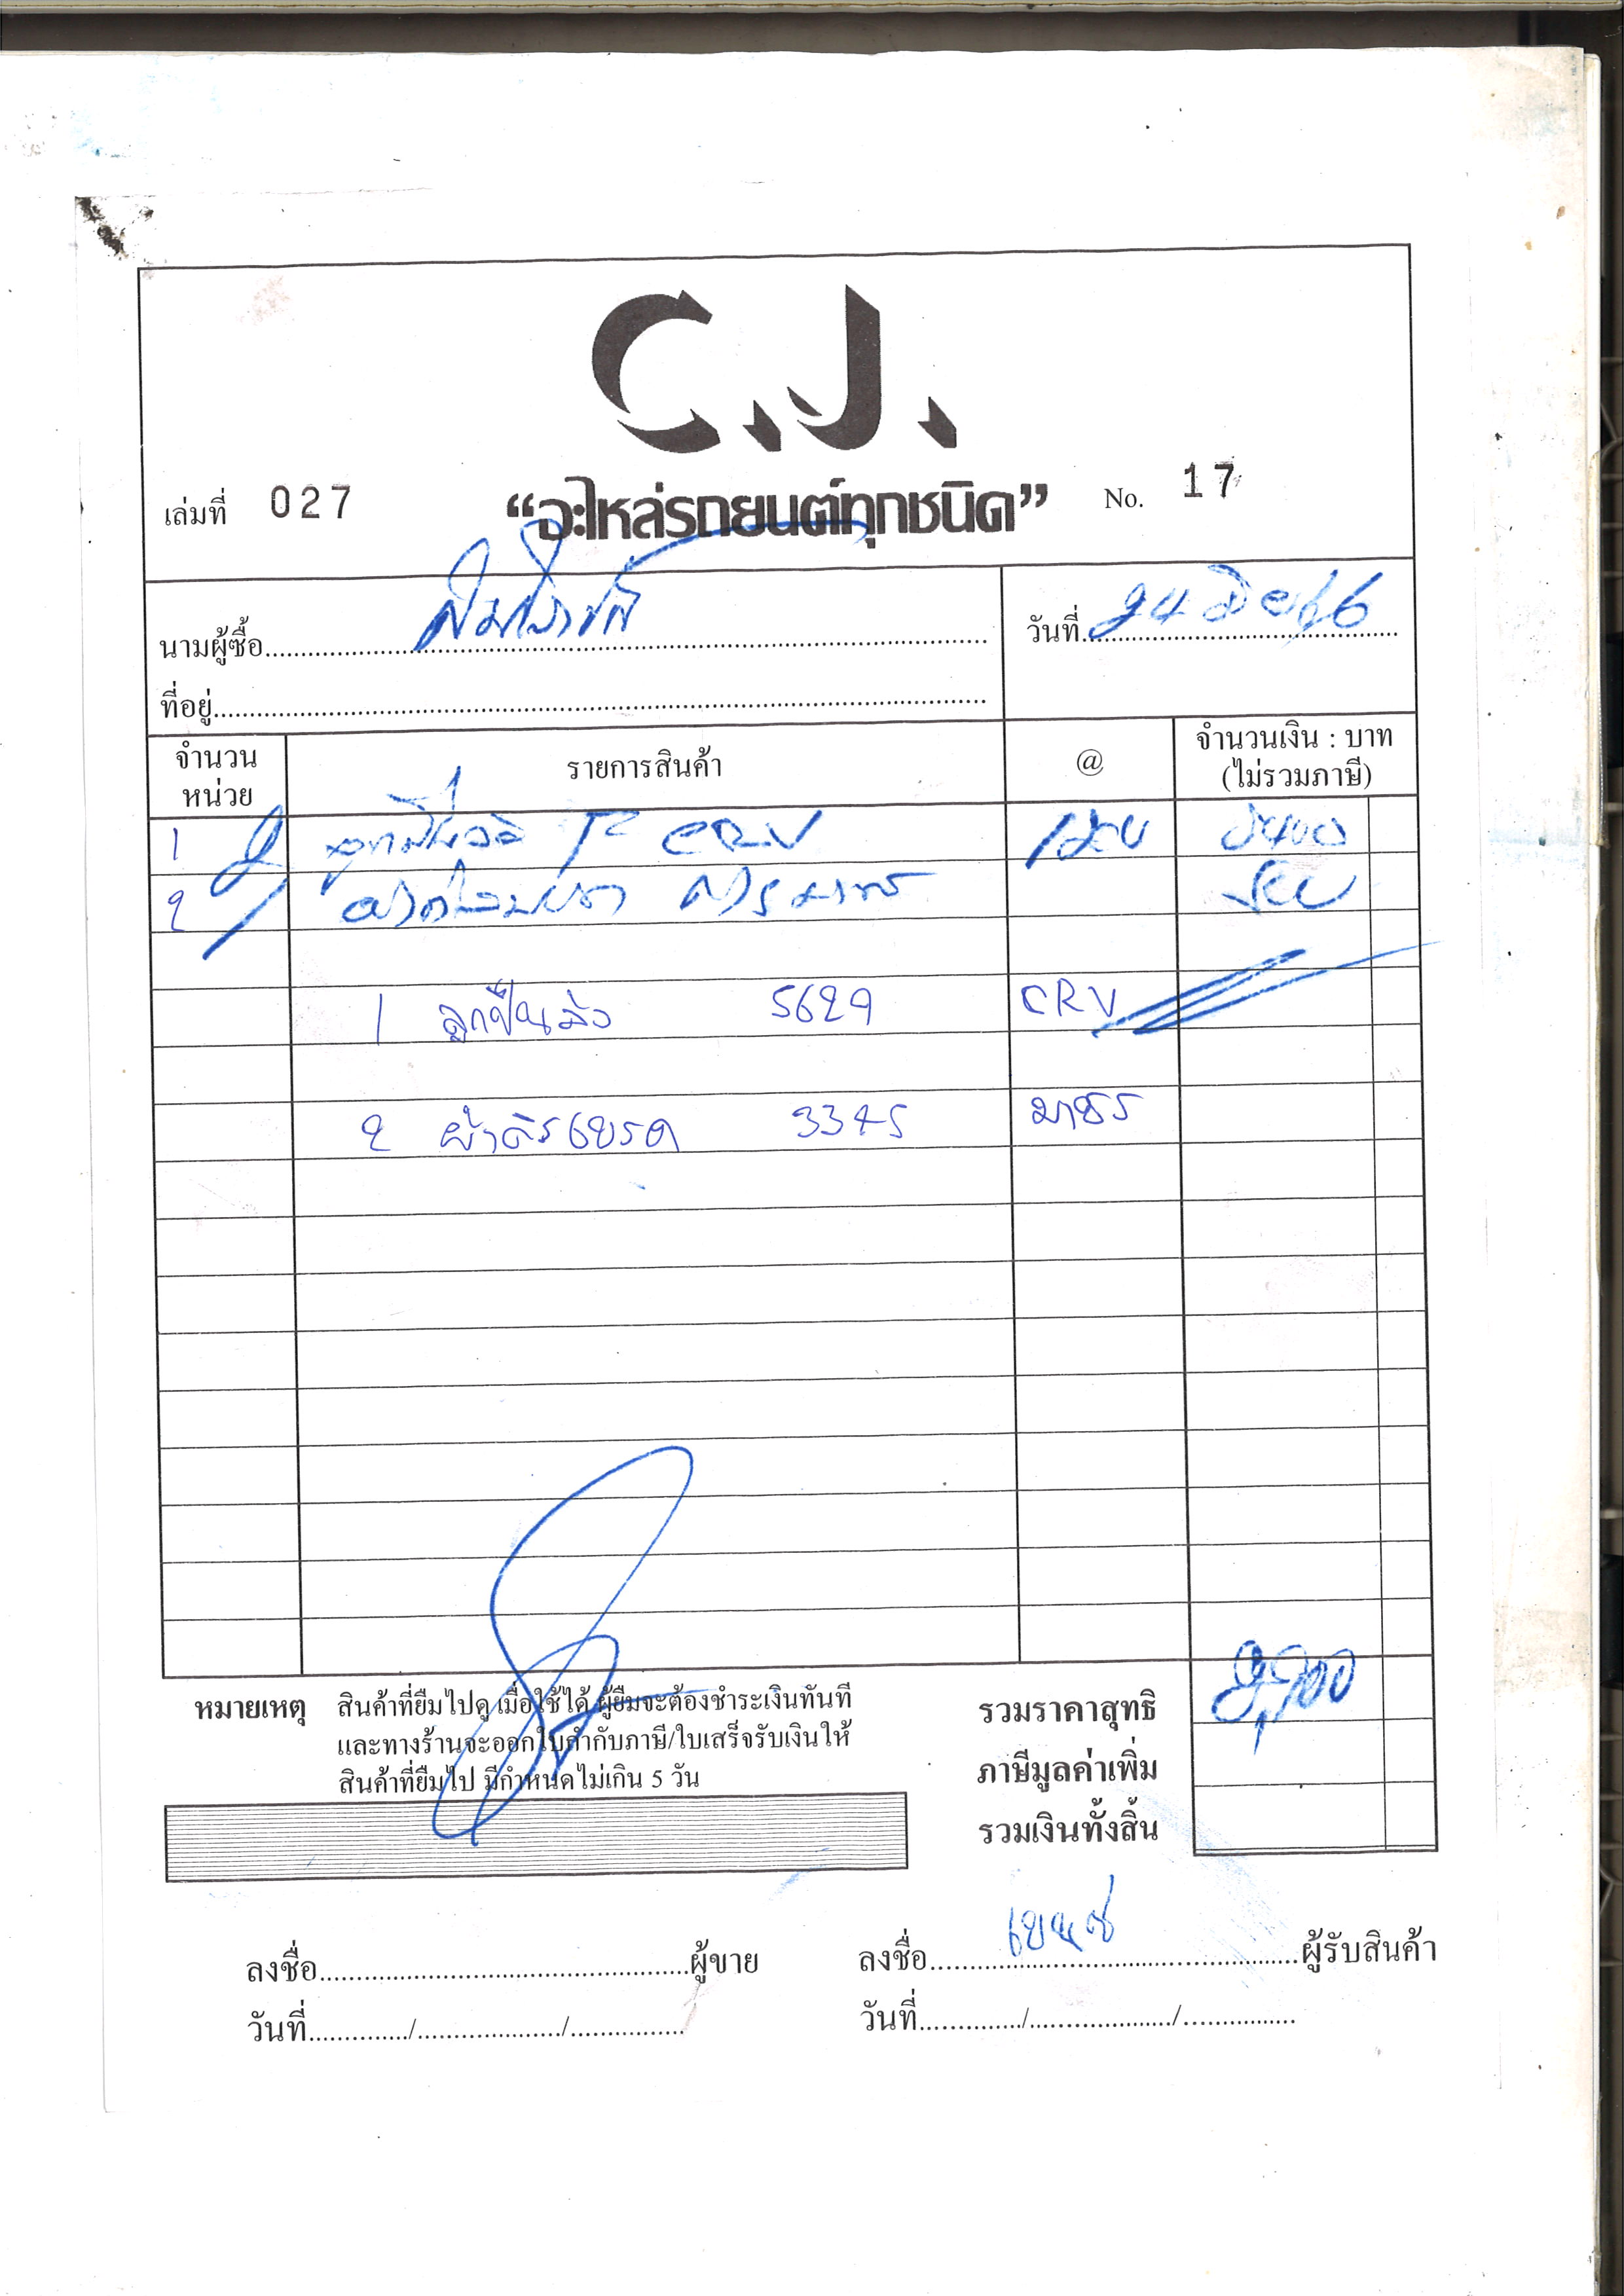 C.J.
เล่มที่ 027 “อะไหล่รถยนต์ทุกชนิด” No. 17
นามผู้ซื้อ
วันที่ 24 มิย 66
ที่อยู่
จำนวนหน่วย รายการสินค้า @ จำนวนเงิน : บาท (ไม่รวมภาษี)
1 2 CRV 1200 2400
2 1
1 ลูกปืนล้อ 5629 CRV
2 ผ้าดิรเบรค 3345 มาชร
หมายเหตุ สินค้าที่ยืมไปดู เมื่อใช้ได้ ผู้ยืมจะต้องชำระเงินทันที
และทางร้านจะออกใบกำกับภาษี/ใบเสร็จรับเงินให้
สินค้าที่ยืมไป มีกำหนดไม่เกิน 5 วัน
รวมราคาสุทธิ
ภาษีมูลค่าเพิ่ม
รวมเงินทั้งสิ้น
ลงชื่อ ผู้ขาย ลงชื่อ ผู้รับสินค้า
วันที่ / / วันที่ / /